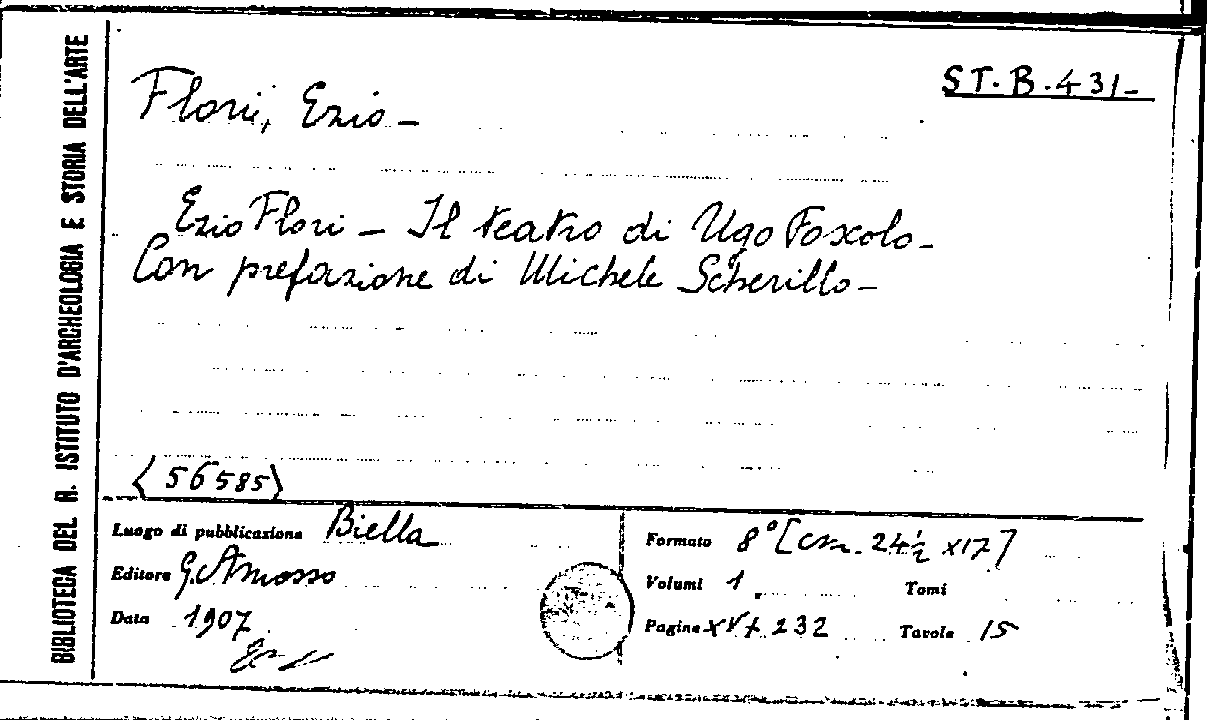 BIBLIOTECA DEL R. ISTITUTO D'ARCHEOLOGIA E STORIA DELL'ARTE
ST. B. 431-
Flori, Ezio -
Ezio Flori - Il teatro di Ugo Foscolo -
Con prefazione di Michele Scherillo -
<56585>
Luogo di pubblicazione Biella
Editore G. Amosso
Data 1907
Formato 8° [cm. 24½ x17]
Volumi 1 Tomi
Pagine XV+232 Tavole 15